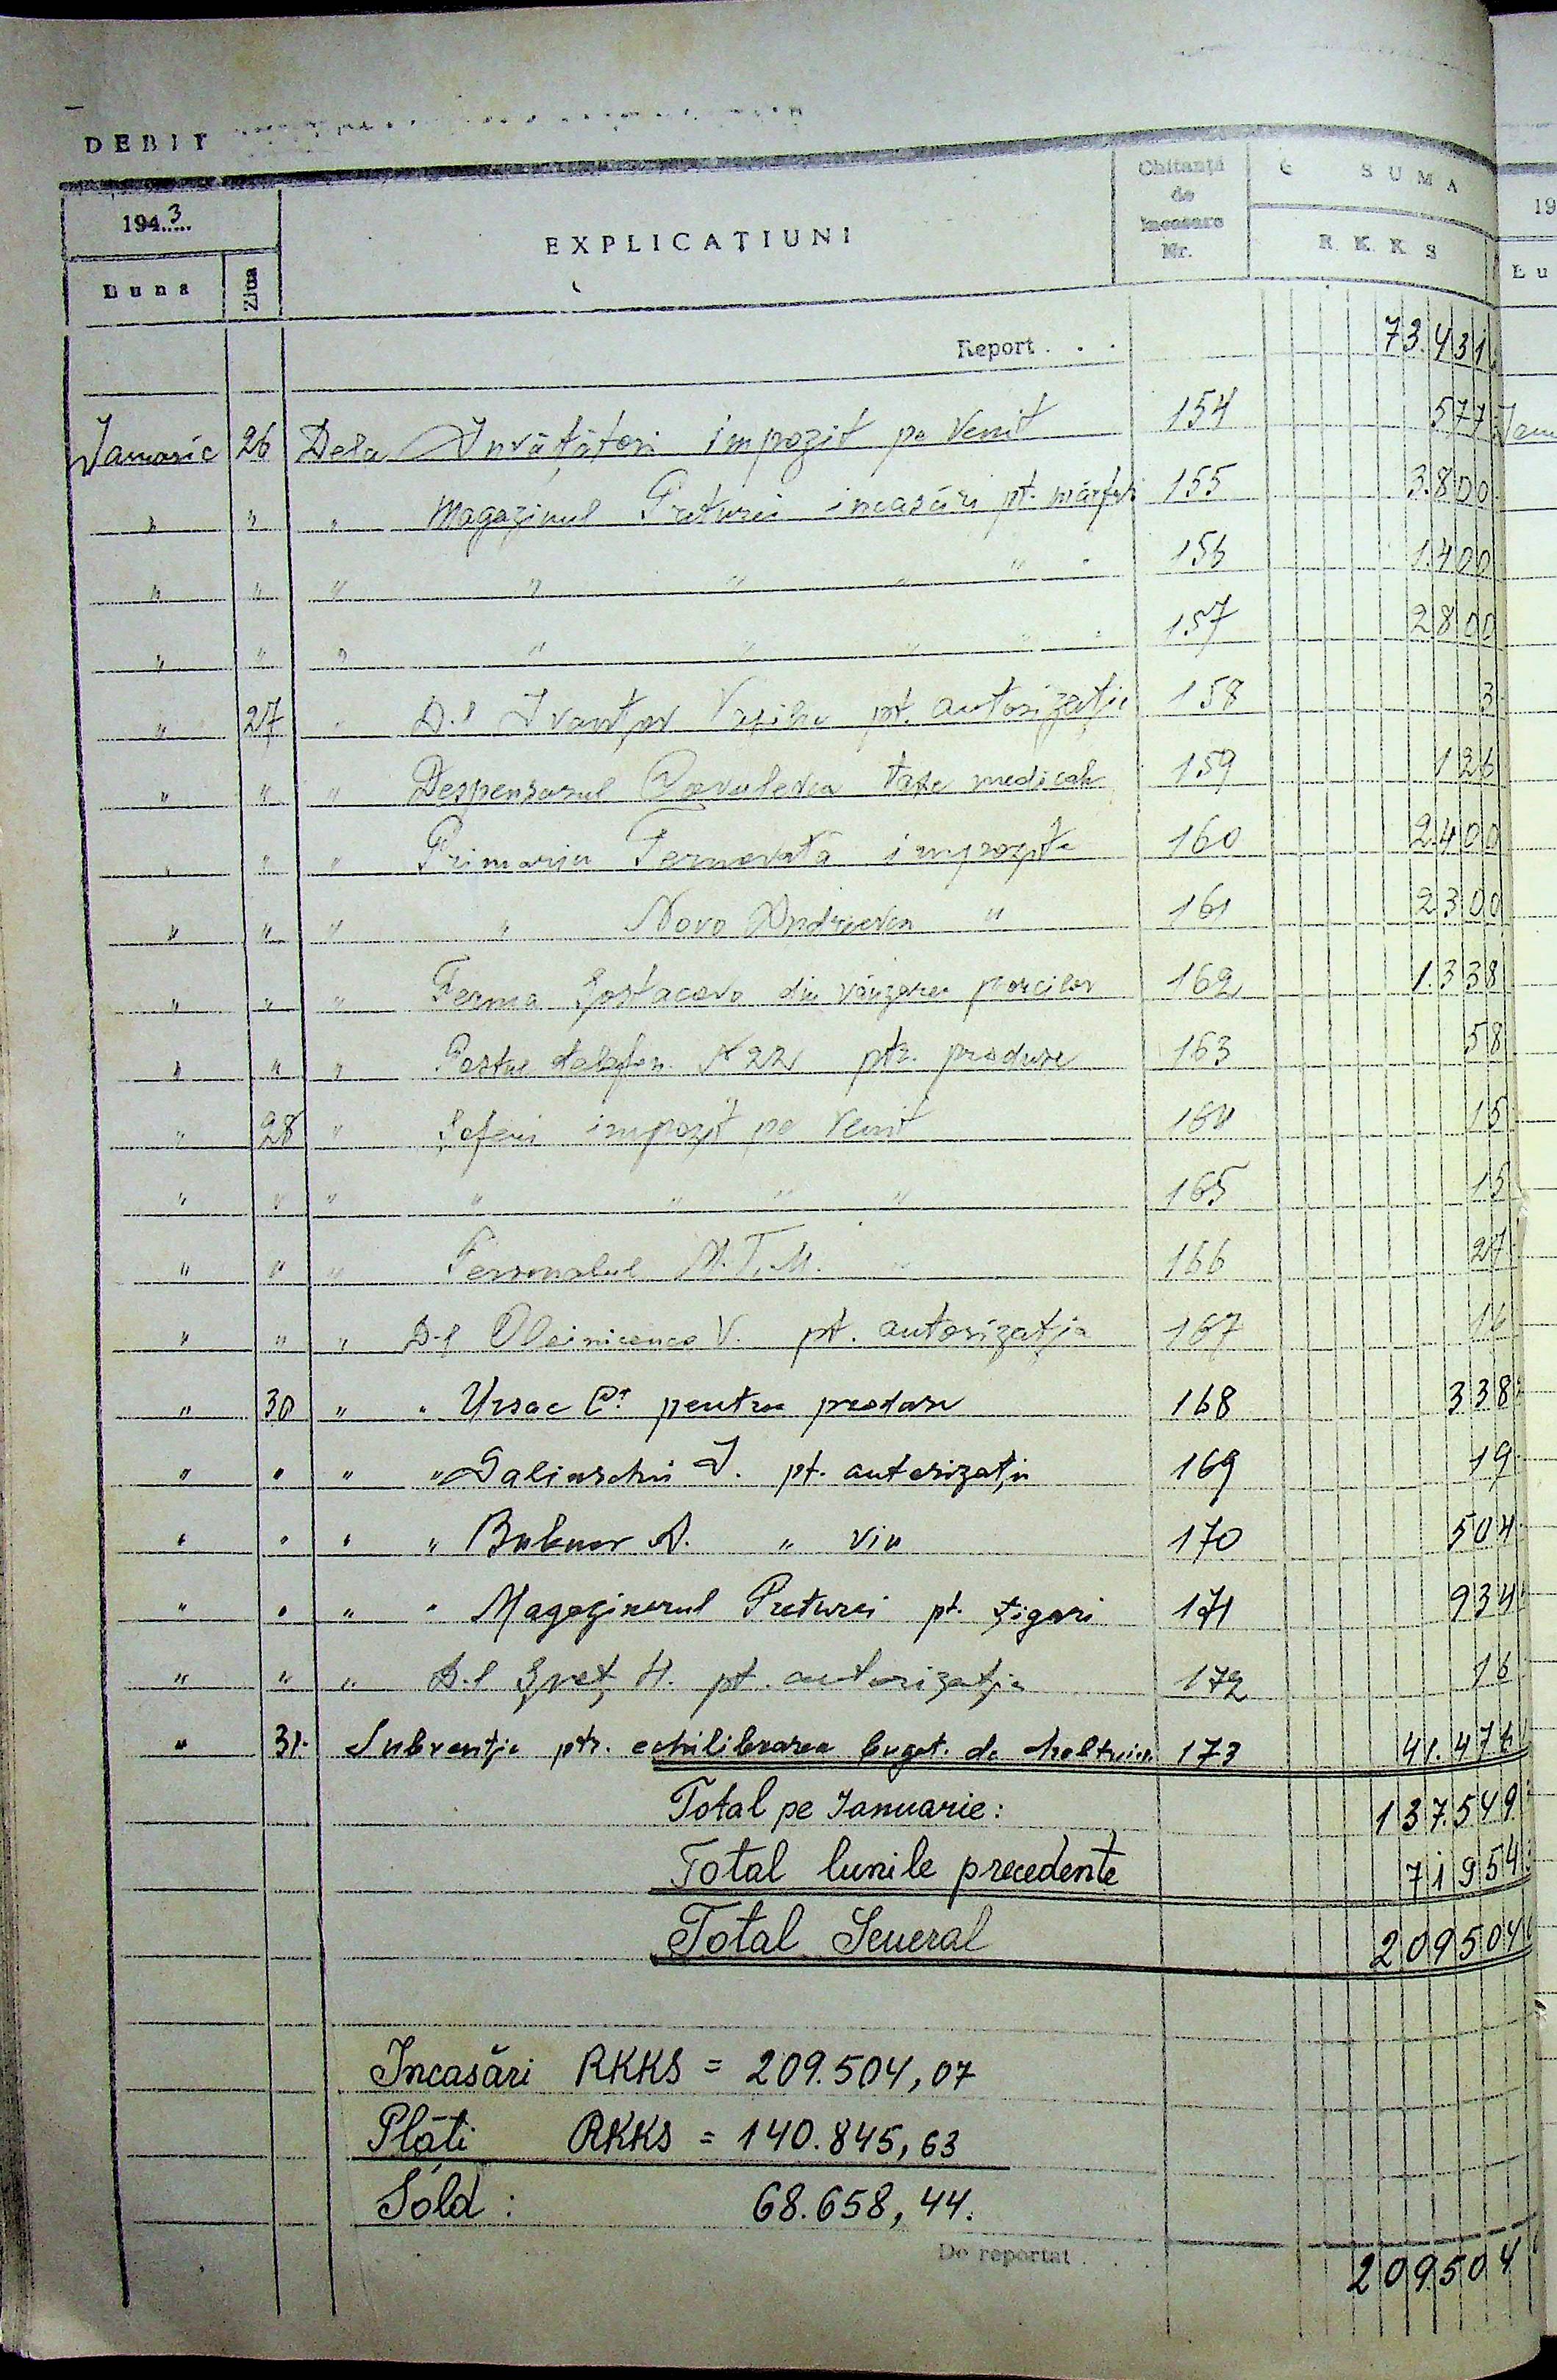 DEBIT
1943
Luna Ziua
EXPLICAȚIUNI
Chitanții de incasare Nr.
SUMA
R. K. K. S
Report . . . 73.431
Januarie 26 Dela Învățători impozit pe venit 154 577
" " " Magazinul Preturei incasări pt. mărfuri 155 3.800
" " " " " " " 156 1.400
" " " " " " " 157 2800
" 27 " D-l pt. autorizație 158 3
" " " Despensarul taxe medicale 159 126
" " " Primaria Ternovata impozite 160 2.400
" " " " Novo Andreevca " 161 2300
" " " Ferma din vânzarea porcilor 162 1.338
" " " Postul telefon. N 22 ptr. produse 163 58
" 28 " Șoferi impozit pe venit 164 15
" " " " " " " 165 15
" " " Personalul M.T.M. " 166 27
" " " D-l Oleinicenco V. pt. autorizația 167 16
" 30 " " Ursac pentru produse 168 338
" " " " Galinschii I. pt. autorizația 169 19
" " " " A. " vin 170 504
" " " " Magazinerul Preturei pt. țigari 171 934
" " " D-l Șveț H. pt. autorizația 172 16
" 31 Subvenția ptr. echilibrarea buget. de cheltuieli 173 41.476
Total pe Januarie: 137.549
Total lunile precedente 71954
Total General 209504
Incasări RKKS = 209.504,07
Plăți RKKS = 140.845,63
Sold : 68.658,44.
De reportat . . . 209504
19
Lu
Jan